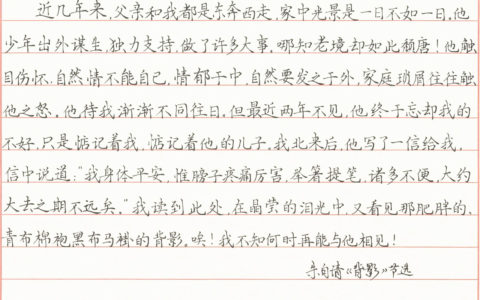 近几年来,父亲和我都是东奔西走,家中光景是一日不如一日,他
少年出外谋生,独力支持,做了许多大事,哪知老境却如此颓唐!他触
目伤怀,自然情不能自已,情郁于中,自然要发之于外,家庭琐屑往往触
他之怒。他待我渐渐不同往日,但最近两年不见,他终于忘却我的
不好,只是惦记着我,惦记着他的儿子,我北来后,他写了一信给我,
信中说道:"我身体平安,惟膀子疼痛厉害,举箸提笔,诸多不便,大约
大去之期不远矣。"我读到此处,在晶莹的泪光中,又看见那肥胖的、
青布棉袍黑布马褂的背影。唉!我不知何时再能与他相见!
朱自清《背影》节选